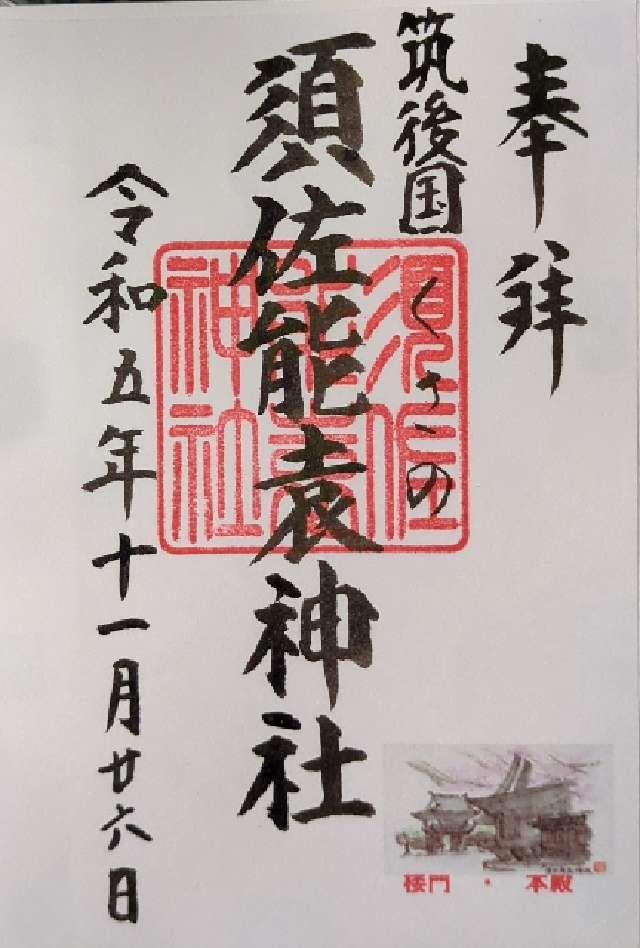 奉拝
筑後国
くさの
須佐能袁神社
須佐能袁神社
令和五年十一月廿六日
楼門・本殿